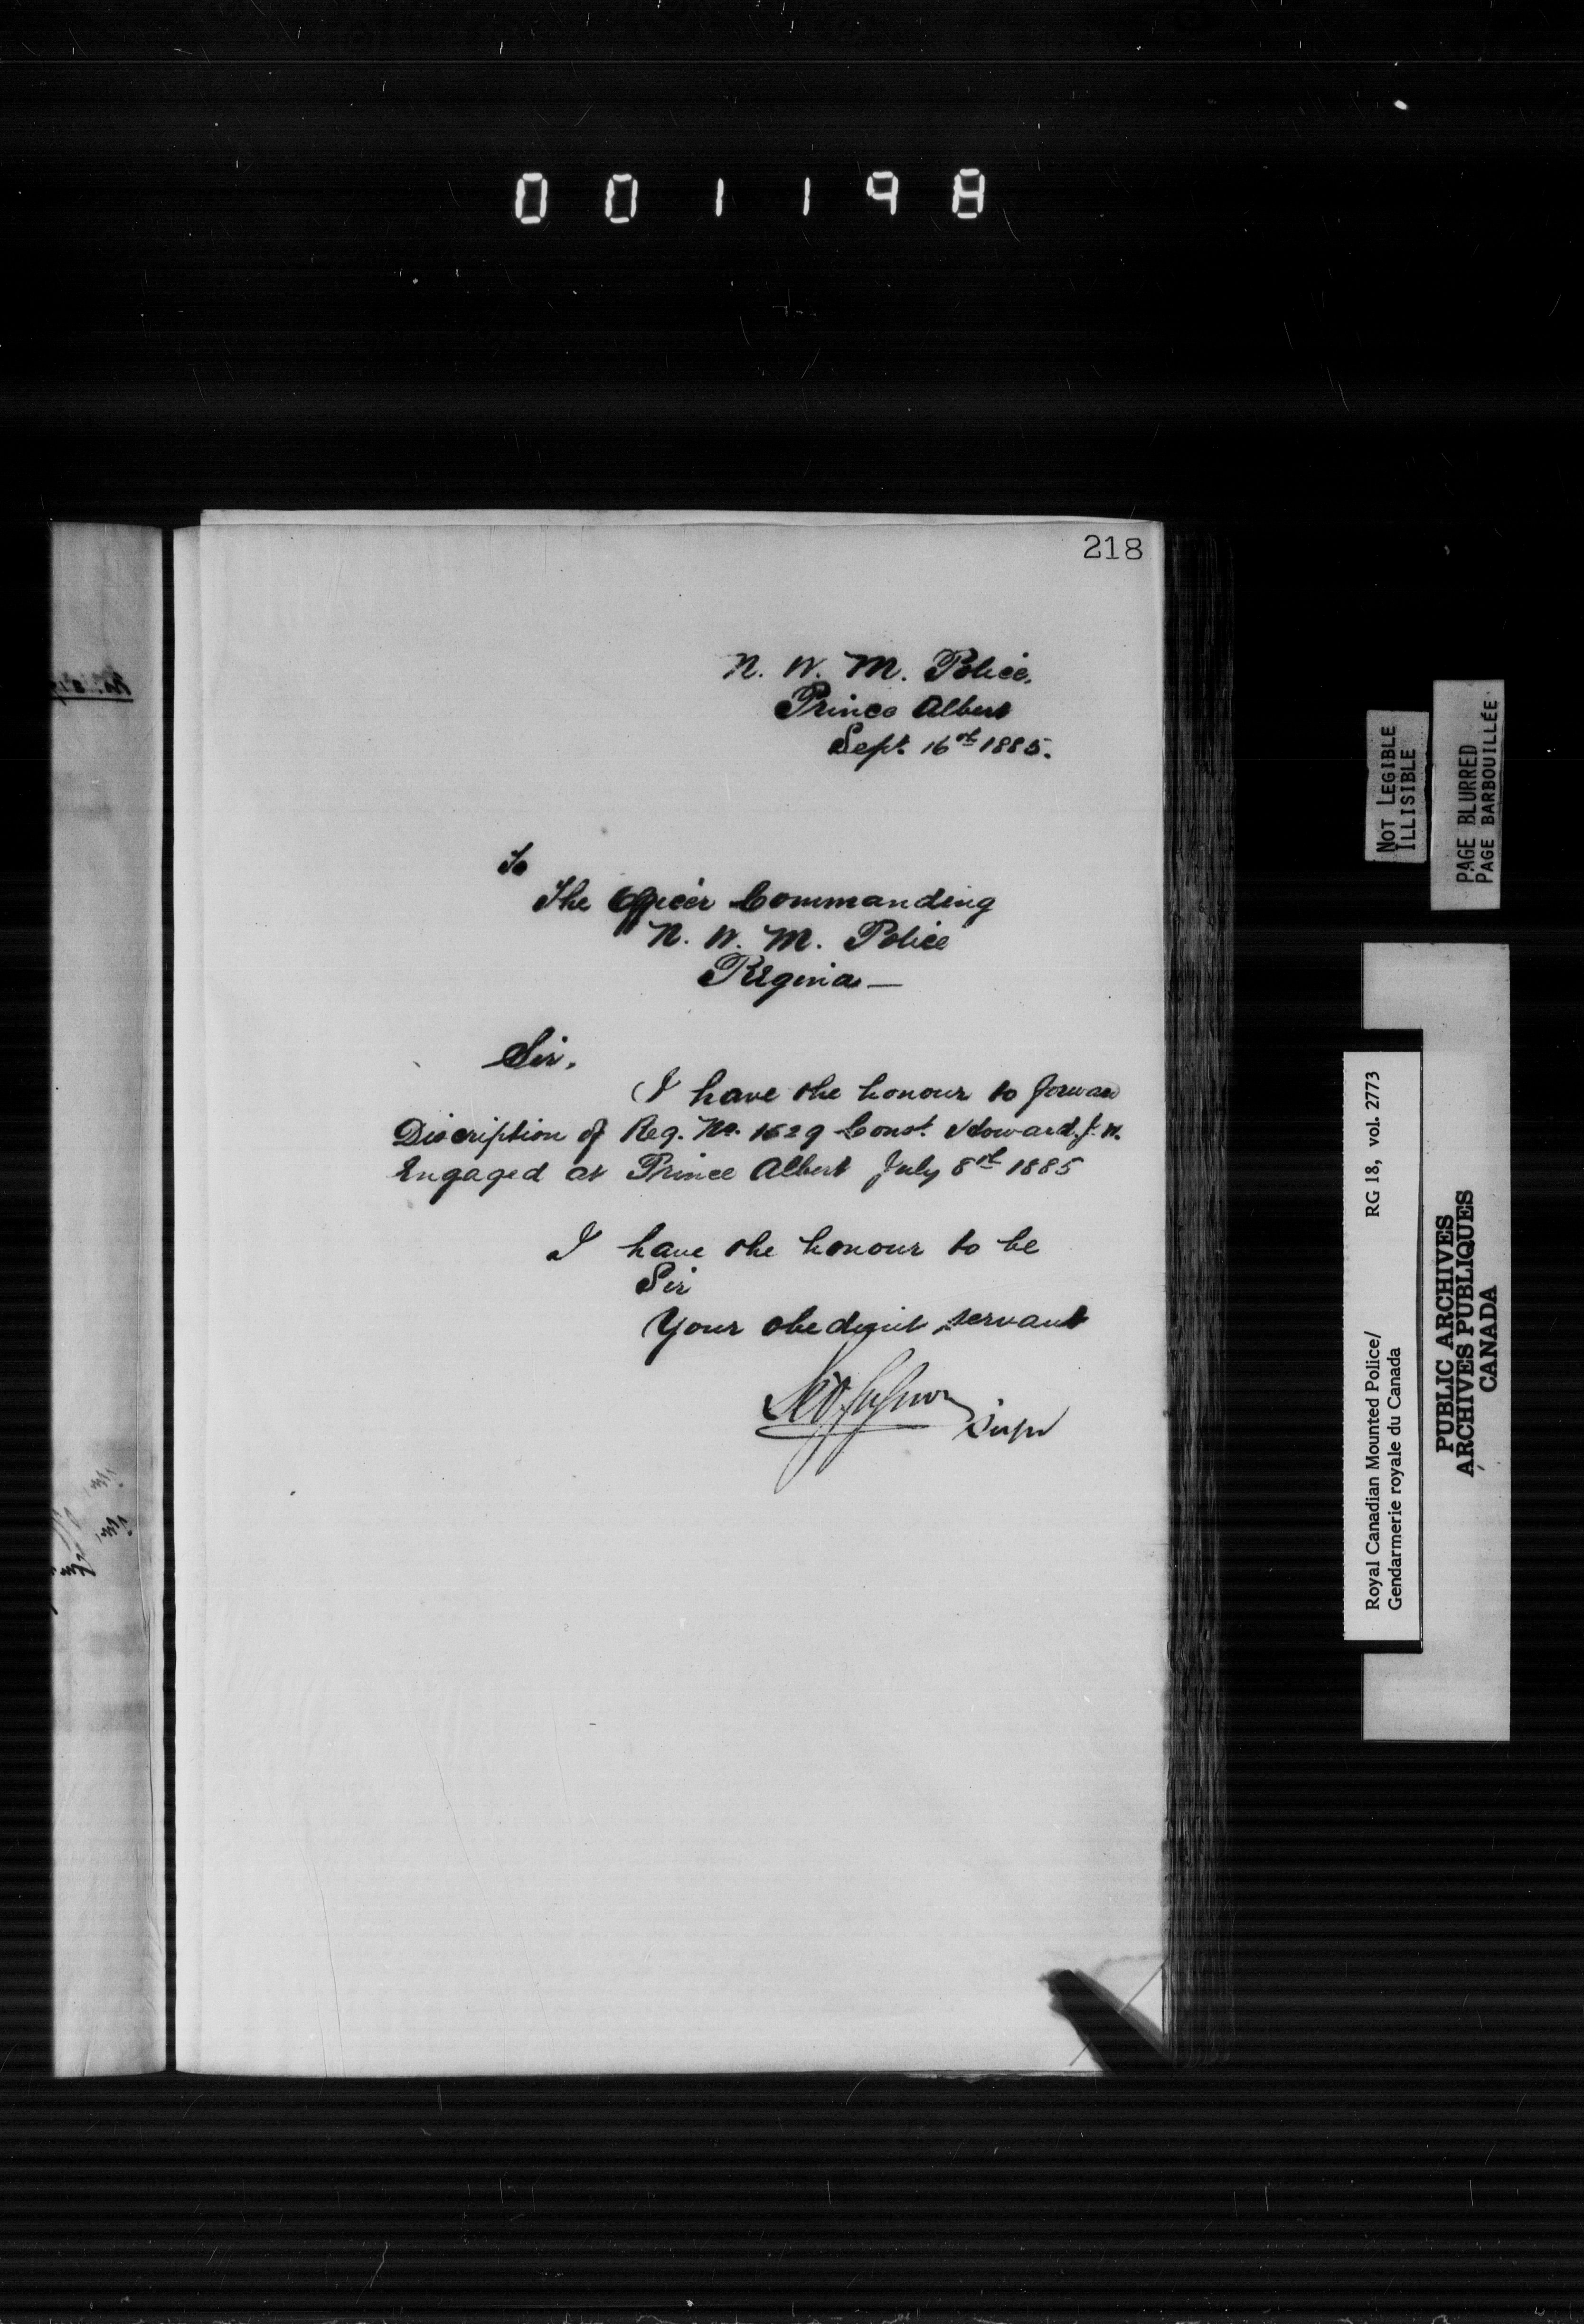 001198
218
N. W. M. Police.
Prince Albert
Sept. 16th 1885.
To
The Officer Commanding
N. W. M. Police
Regina —
Sir,
I have the honour to forward
Discription of Reg. No. 1629 Const. Howard. J. H.
Engaged at Prince Albert July 8th 1885
I have the honour to be
Sir
Your obedient servant
Supt
NOT LEGIBLE
ILLISIBLE
PAGE BLURRED
PAGE BARBOUILLÉE
Royal Canadian Mounted Police/ RG 18, vol. 2773
Gendarmerie royale du Canada
PUBLIC ARCHIVES
ARCHIVES PUBLIQUES
CANADA